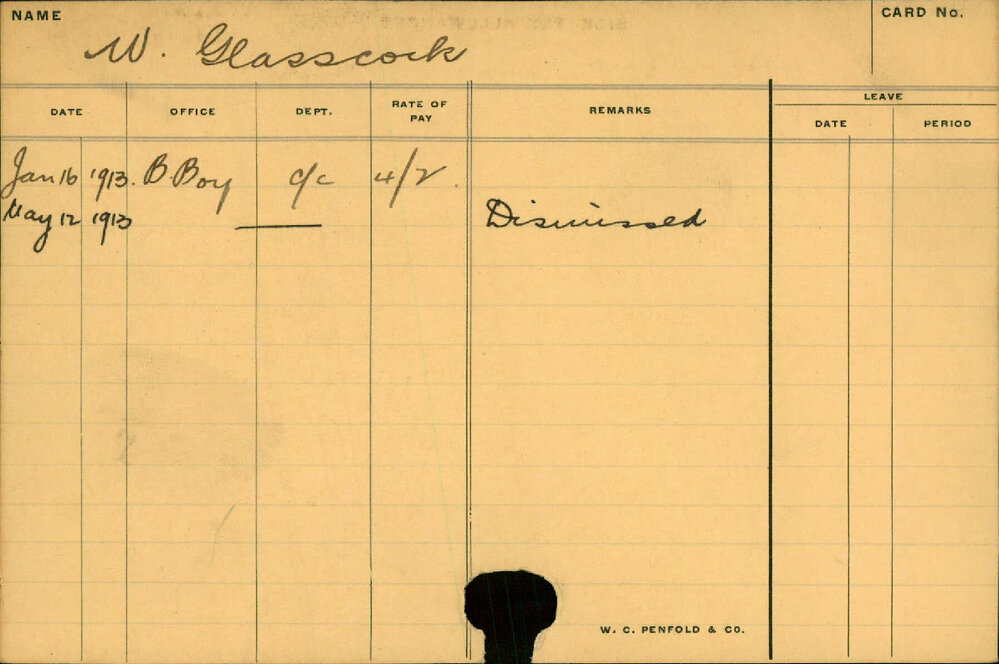 NAME
W. Glasscock
CARD No.
DATE OFFICE DEPT. RATE OF PAY REMARKS LEAVE
DATE PERIOD
Jan 16 1913. B. Boy c/c 4/2.
May 12 1913 — Dismissed
W. C. PENFOLD & CO.